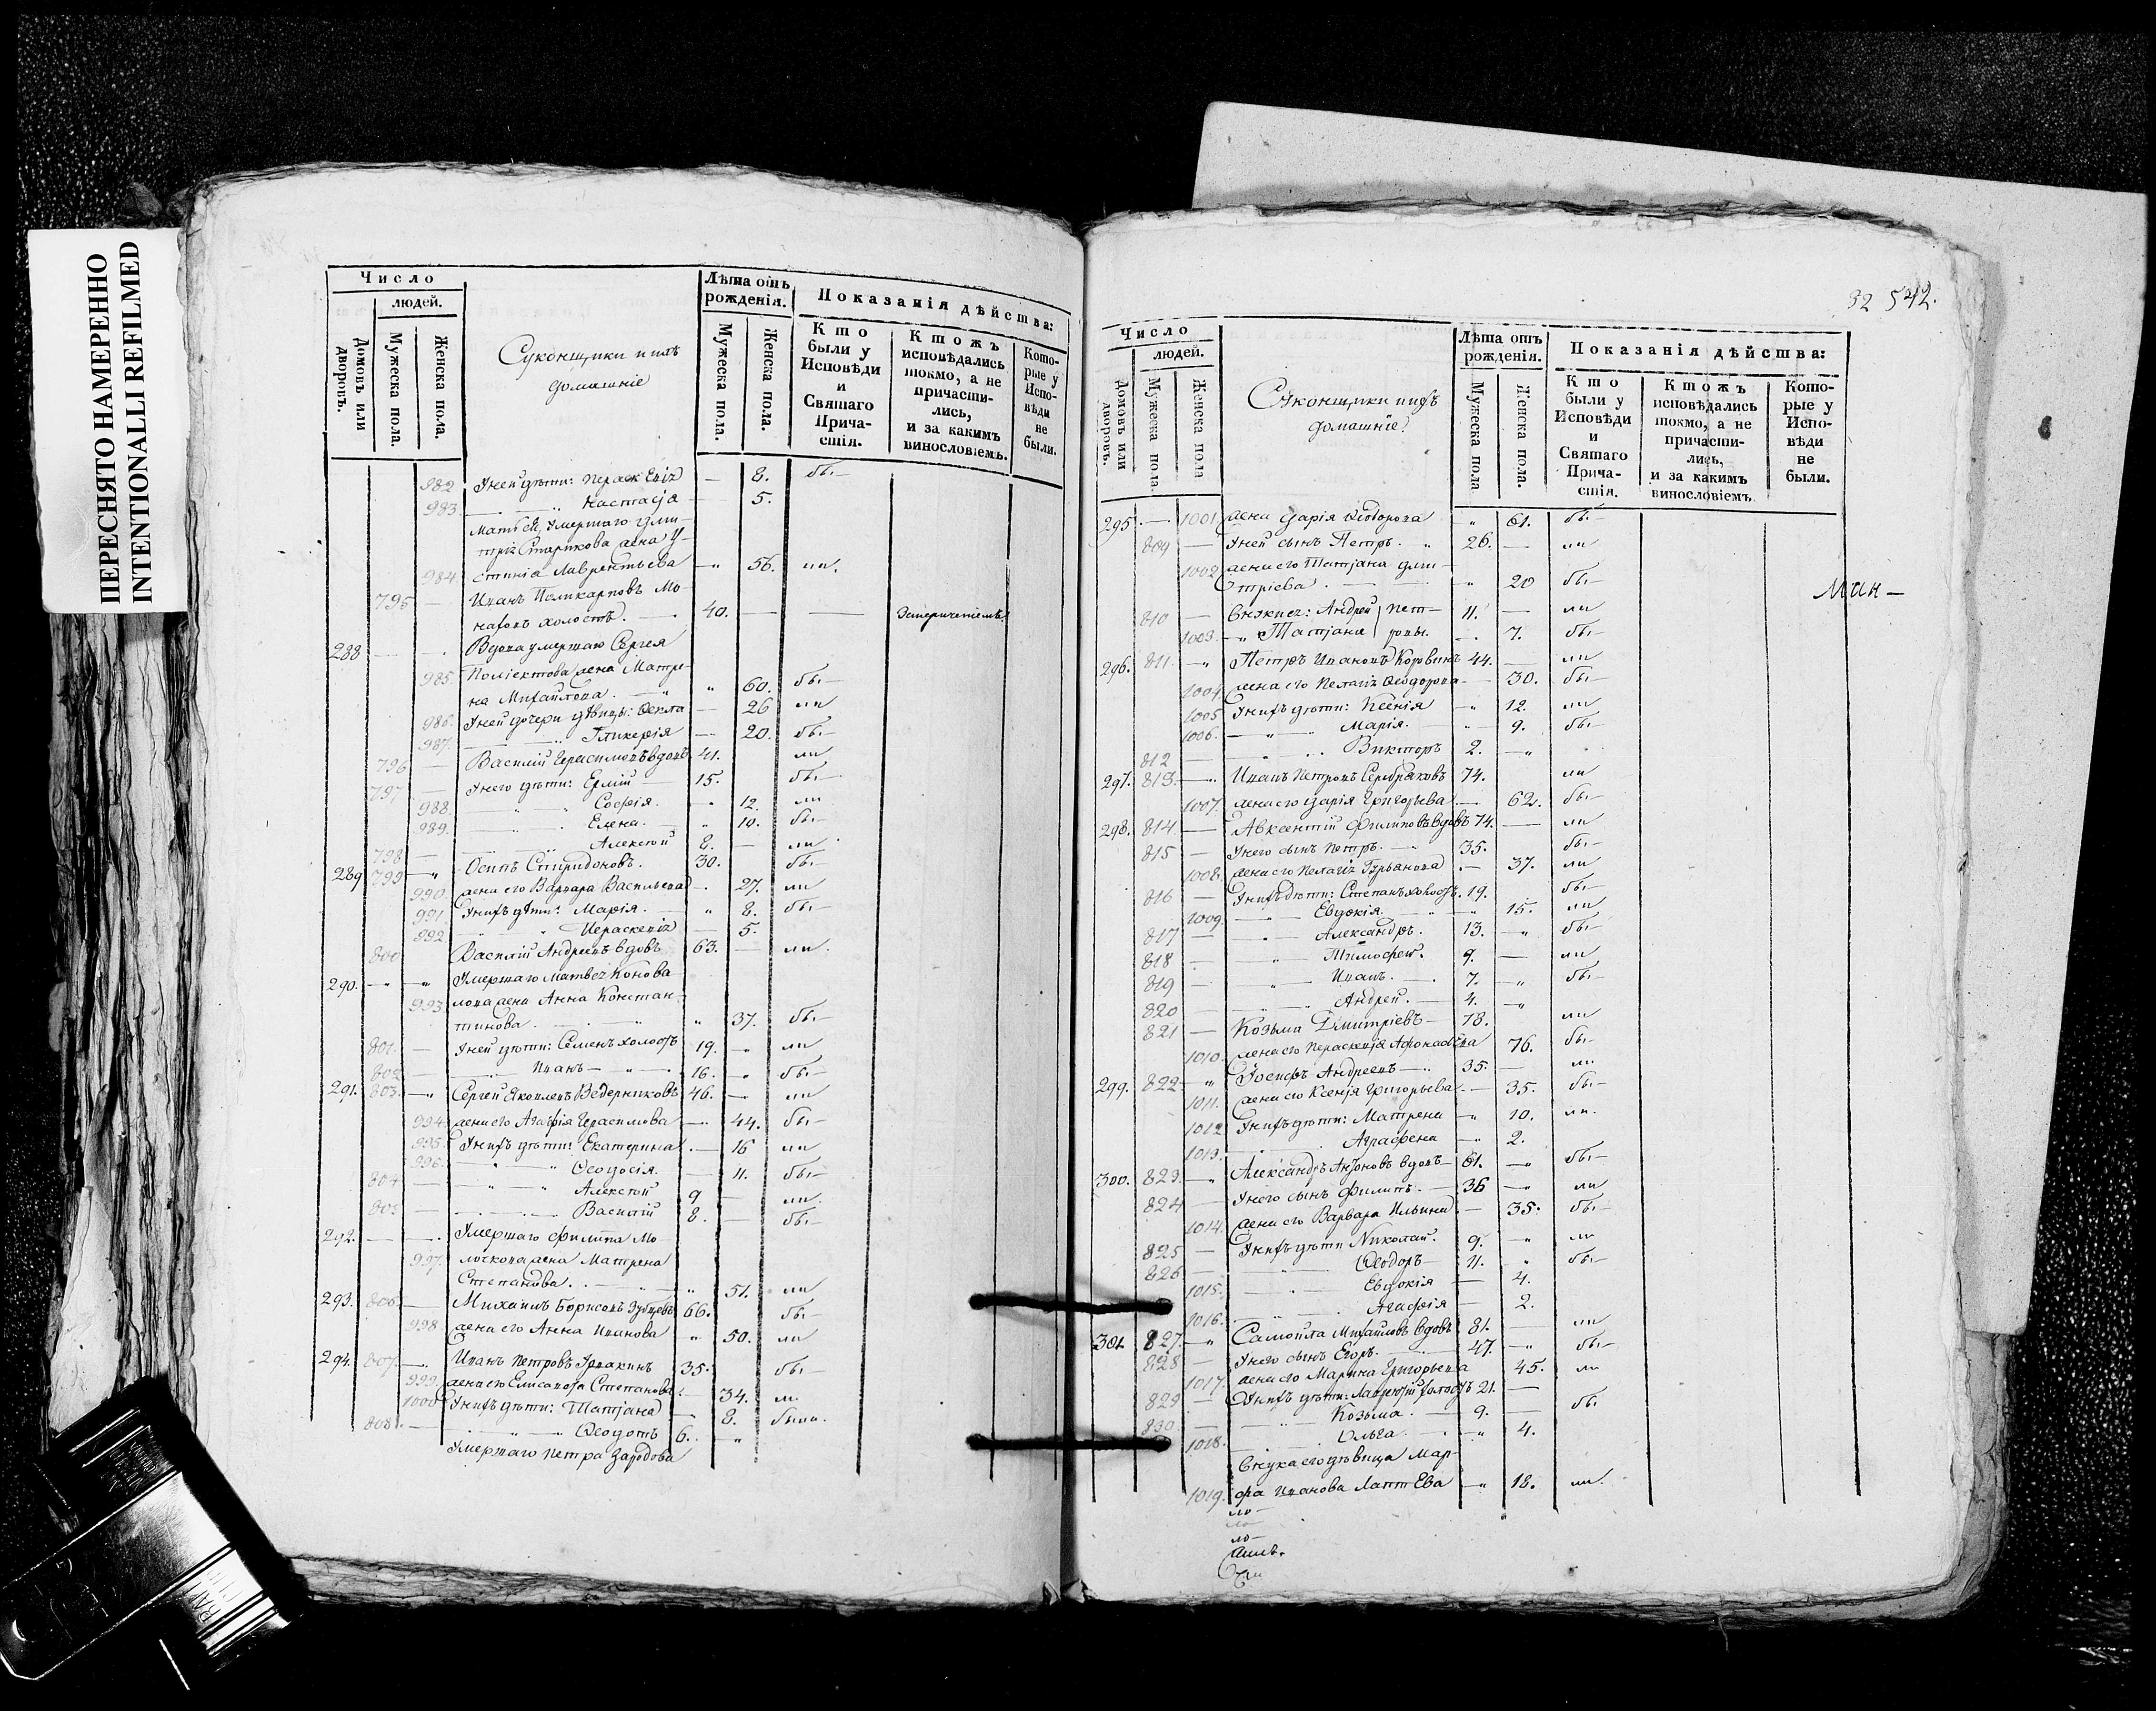 ПЕРЕСНЯТО НАМЕРЕННО
INTENTIONALLI REFILMED
Число
людей.
Домовъ или дворовъ.
Мужеска пола.
Женска пола.
Суконщики и ихъ
домашніе
Лѣта отъ рожденія.
Мужеска пола.
Женска пола.
Показанія дѣйства:
Кто были у Исповѣди и Святаго Причастія.
Ктожъ исповѣдались токмо, а не причастились, и за какимъ винословіемъ.
Которые у Исповѣди не были.
982 Унеи дѣти: Параск 8. бы-
983. Настасја 5.
Мать ея, Умершаго Дми-
трія Старикова жена У-
984 стиніа Лаврентьева 56. ли.
795 Иванъ Поликарповъ Мо-
ховъ холостъ. 40.
288 Вдова умершаго Сергея
985. Поліектова жена Матре-
на Михайлова. 60. бы-
986. Унеи дочери дѣвицы: Ѳекла 26 ли
987. Гликерія 20. бы-
796 Василій Герасимовъ вдовъ 41. ли
797 Унего дѣти: Ермій 15. бы-
988. Софія. 12. ли
989. Елена. 10. бы-
798 Алексѣй 8. ли
289 799 Осипъ Спиридоновъ. 30. бы-
990. жена его Варвара Васильева 27. ли
991. Унихъ дѣти: Марія. 8. бы-
992. Параскевіа 5.
800 Василій Андреевъ вдовъ 63. ли.
290. Умершаго Матвея Конова
993. лова жена Анна Констан-
тинова. 37. бы-
801. Унеи дѣти: Семенъ холостъ 19. ли
802 Иванъ 16. бы-
291. 803. Сергей Яковлевъ Ведерниковъ 46. ли
994. жена его Агафія Герасимова 44. бы-
995. Унихъ дѣти: Екатерина 16 ли
996. Ѳеодосія. 11. бы-
804 Алексѣй 9 ли
805 Василій 8. бы-
292. Умершаго Филипа Мо-
997. жена Матрена
Степанова. 51. ли
293. 806. Михаилъ Борисовъ 66. бы-
998 жена его Анна Иванова 50. ли
294. 807. Иванъ Петровъ 35. бы-
999. жена его Елисавета Степанова 34. ли
1000 Унихъ дѣти: Татјана 8. были.
808. Ѳеодотъ 6.
Умершаго Петра
32 542.
Число
людей.
Домовъ или дворовъ.
Мужеска пола.
Женска пола
Суконщики ихъ
домашніе.
Лѣта отъ рожденія.
Мужеска пола
Женска пола.
Показанія дѣйства:
Кто были у Исповѣди и Святаго Причастія.
Ктожъ исповѣдались токмо, а не причастились, и за какимъ винословіемъ
Которые у Исповѣди не были.
295. 1001. жена Дарія Ѳеодорова 61. бы-
809 Унеи сынъ Петръ. 26. ли
1002 жена его Татјана Дми-
тріева 20 бы-
810 Внуки ея: Андрей Пет- 11. ли
1003. Татјана ровы. 7. бы-
296. 811. Петръ Ивановъ Коровинъ 44. ли
1004. жена его Пелагія Ѳеодорова 30. бы-
1005 Унихъ дѣти: Ксенія 12. ли
1006. Марія. 9. бы-
812 Викторъ 2.
297. 813. Иванъ Петровъ Серебряковъ 74. ли
1007. жена его Дарія Григорьева 62. бы-
298. 814 Авксентій Филиповъ вдовъ 74. ли
815 Унего сынъ Петръ. 35. бы-
1008. жена его Пелагія Гурьянова 37. ли
816 Унихъ дѣти: Степанъ холостъ. 19. бы-
1009. Евдокія. 15. ли
817 Александръ. 13. бы-
818 Тимофей. 9. ли
819 Иванъ. 7. бы-
820 Андрей. 4.
821 Козьма Дмитріевъ 78. ли
1010. жена его Параскевія Афонасьева 76. бы-
299. 822 Іосифъ Андреевъ 35. ли
1011. жена его Ксенія Григорьева 35. бы-
1012 Унихъ дѣти: Матрена 10. ли.
1013. Аграфена 2.
300. 823. Александръ Антоновъ вдовъ 61. бы-
824 Унего сынъ Филипъ. 36 ли
1014. жена его Варвара Ильина 35. бы-
825 Унихъ дѣти Николай. 9. ли
826 Ѳеодоръ 11. бы-
1015. Евдокія 4.
1016. Агафія 2.
301. 827. Самойла Михайловъ вдовъ 81. ли
828 Унего сынъ Егоръ. 47. бы-
1017. жена его Марина Григорьева 45. ли
829 Унихъ дѣти: Лаврентій холостъ 21. бы
830 Козьма. 9.
1018. Ольга. 4.
Внука его дѣвица Мар-
1019. фа Иванова Лаптева 18. ли.